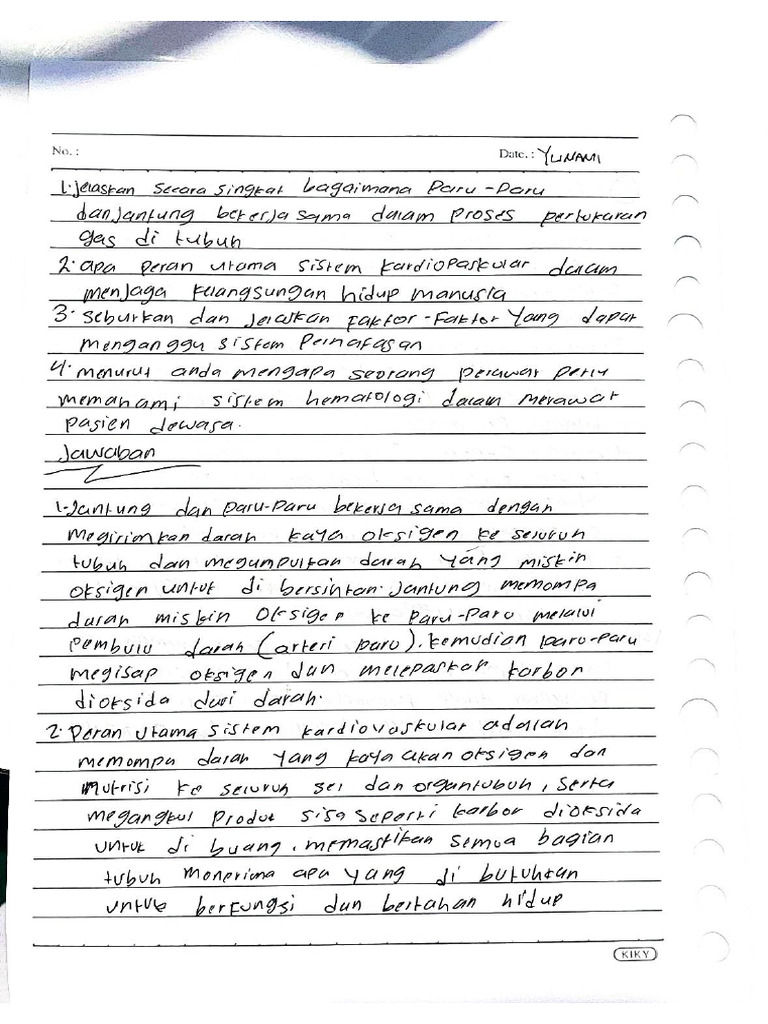 No. :
Date. : YUNAMI
1. Jelaskan secara singkat bagaimana paru-paru
dan jantung bekerja sama dalam proses pertukaran
gas di tubuh
2. apa peran utama sistem kardiopaskular dalam
menjaga kelangsungan hidup manusia
3. Seburkan dan jelaskan faktor-faktor yang dapat
menganggu sistem Pernafasan
4. menurut anda mengapa seorang perawat perlu
memahami sistem hematologi dalam merawat
pasien dewasa.
Jawaban
1. Jantung dan paru-paru bekerja sama dengan
megirimkan darah kaya oksigen ke seluruh
tubuh dan megumpulkan darah yang miskin
oksigen untuk di bersihkan. Jantung memompa
darah miskin oksigen ke paru-paru melalui
pembulu darah (arteri paru). kemudian paru-paru
megisap oksigen dan melepaskan karbon
dioksida dari darah.
2. Peran utama sistem kardiovaskular adalah
memompa darah yang kaya akan oksigen dan
nutrisi ke seluruh sel dan organ tubuh, serta
megangkut produk sisa seperti karbor dioksida
untuk di buang, memastikan semua bagian
tubuh menerima apa yang di butuhkan
untuk berfungsi dan bertahan hidup
KIKY